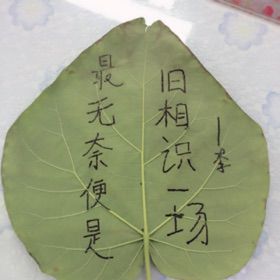 最无奈便是
旧相识一场
—李